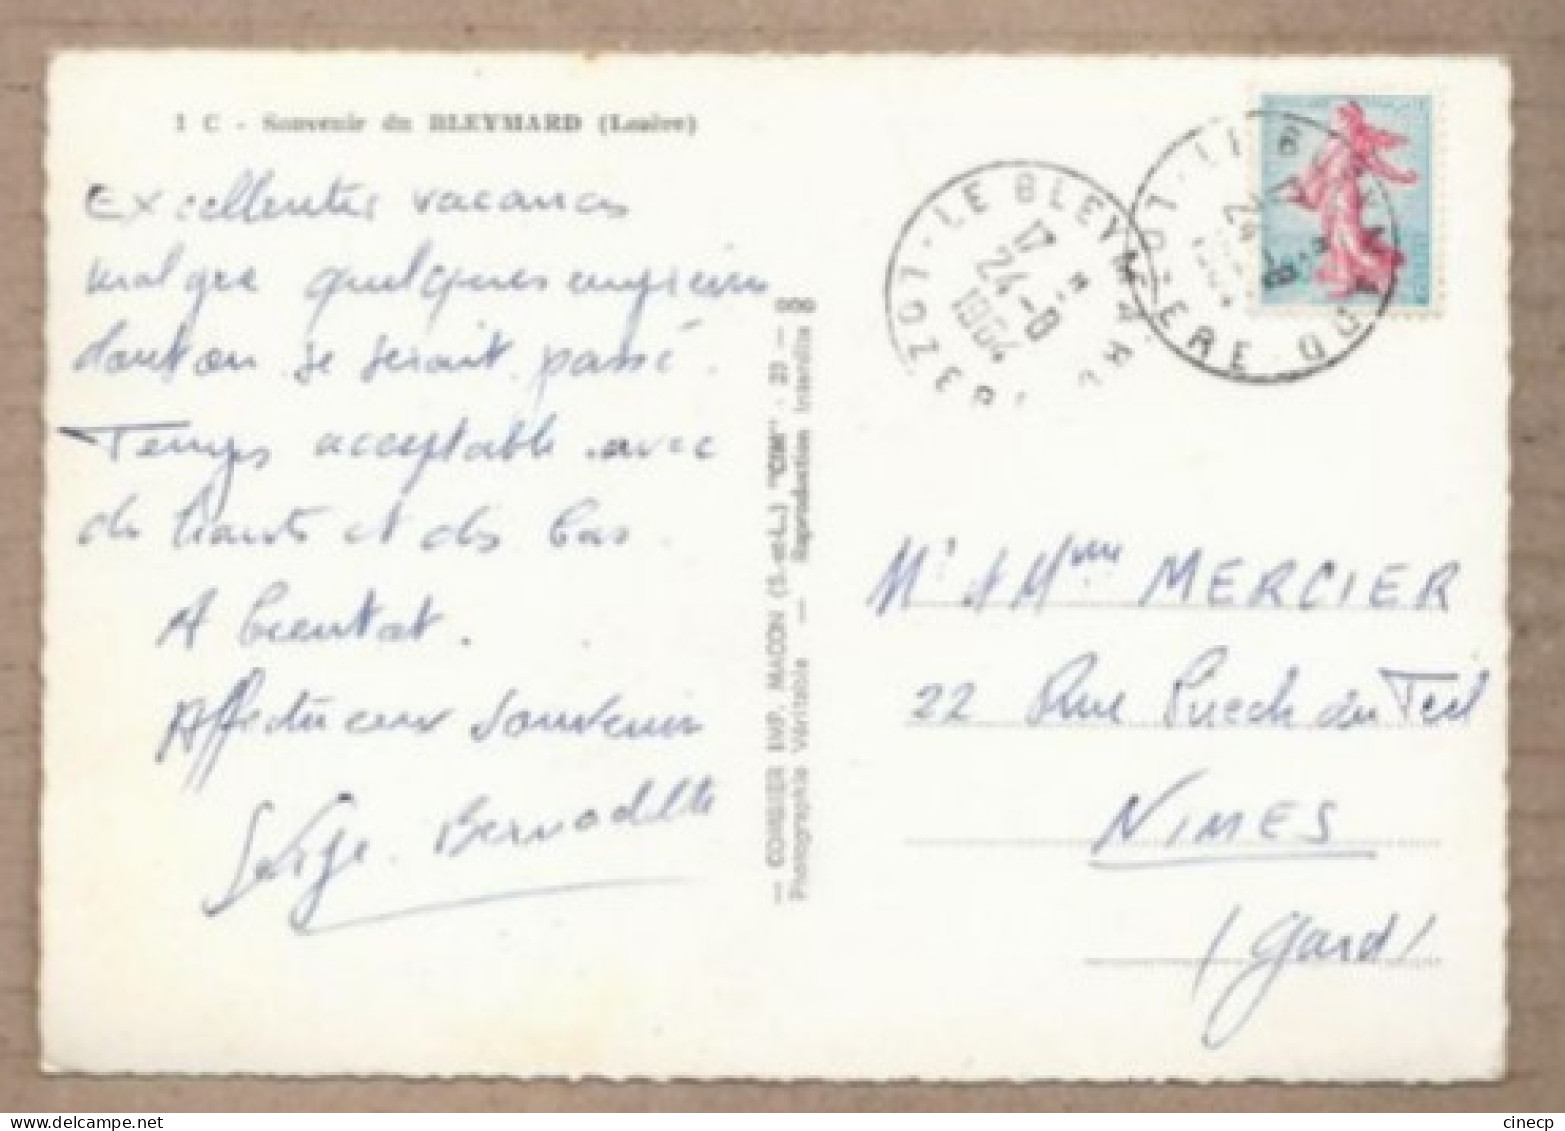 1 C - Souvenir du BLEYMARD (Lozère)
Excellentes vacances
malgré quelques
dont on se serait passé.
Temps acceptable avec
des hauts et des bas.
A bientot.
Affectueux souvenirs
Serge. Bernadette
— COMBIER IMP. MACON (S.-et-L.) "CIM" - 23 —
Photographie Véritable — Reproduction Interdite
LE BLEYMARD
LOZERE
17 H
24-8
1964
LOZERE
Mr & Mme MERCIER
22 Rue Puech du Teil
NIMES
(Gard)
cinecp